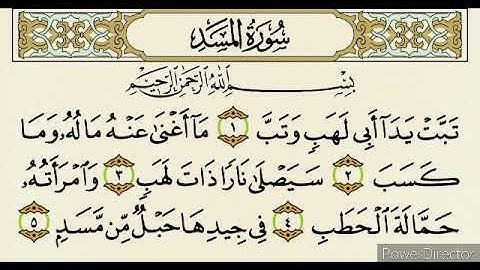 سُورَةُ المَسَدِ
بِسْمِ اللَّهِ الرَّحْمَٰنِ الرَّحِيمِ
تَبَّتْ يَدَآ أَبِي لَهَبٍ وَتَبَّ ١ مَآ أَغْنَىٰ عَنْهُ مَالُهُۥ وَمَا
كَسَبَ ٢ سَيَصْلَىٰ نَارًا ذَاتَ لَهَبٍ ٣ وَٱمْرَأَتُهُۥ
حَمَّالَةَ ٱلْحَطَبِ ٤ فِي جِيدِهَا حَبْلٌ مِّن مَّسَدٍۭ ٥
PowerDirector